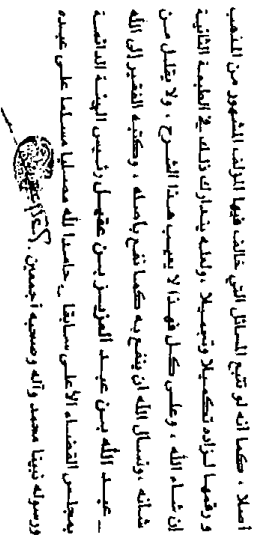 أصلا ، كما انه لو تتبع المسائل التي خالف فيها المؤلف المشهور من المذهب
ورقمها لزاده تكميلا وتجميلا ، ولعله يتدارك ذلك في الطبعة الثانية
إن شاء الله ، وعلى كل فهذا لا يعيب هذا الشرح ، ولا يقلل من
شأنه ، ونسأل الله أن ينفع به كما نفع بأصله ، وكتبه الفقير إلى الله
ـ عبد الله بن عبد العزيز بن عقيل رئيس الهيئة الدائمة
بمجلس القضاء الأعلى سابقا ـ حامدا لله مصليا مسلما على عبده
ورسوله نبينا محمد وآله وصحبه أجمعين .